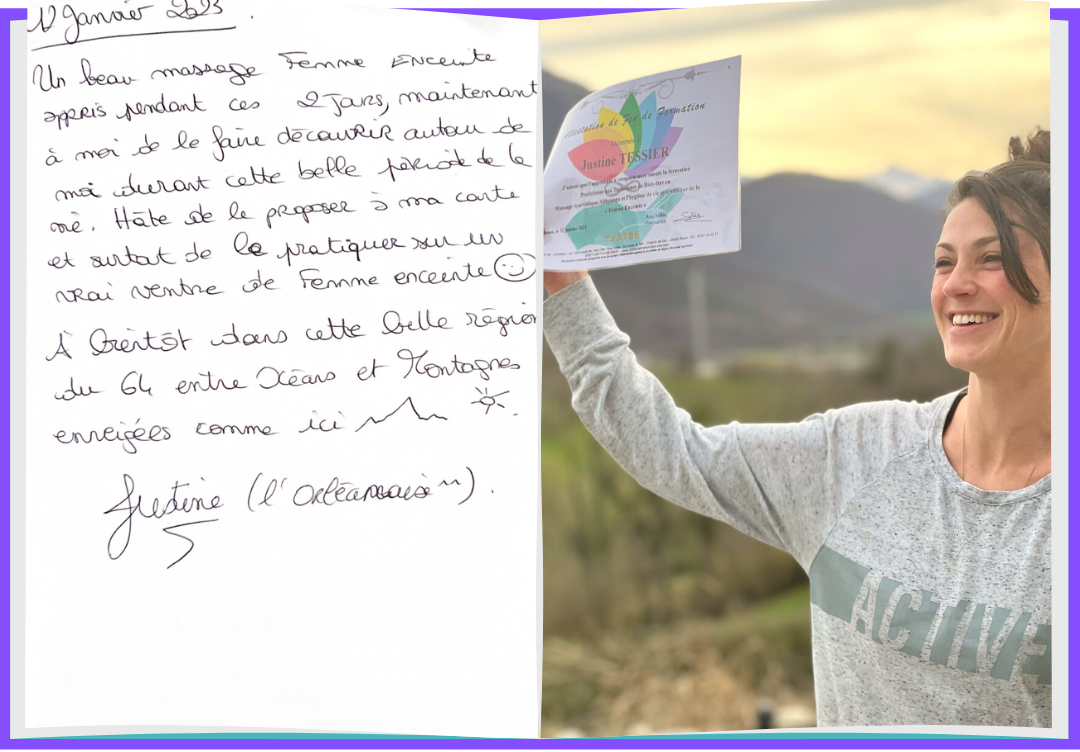 12 Janvier 2023.
Un beau massage Femme Enceinte
appris pendant ces 2 Jours, maintenant
à moi de le faire découvrir autour de
moi durant cette belle période de la
vie. Hâte de le proposer à ma carte
et surtout de le pratiquer sur un
vrai ventre de Femme enceinte
À bientôt dans cette belle région
du 64 entre Océans et Montagnes
enneigées comme ici
Justine (l'Orléanaise ^^).
Attestation de Fin de Formation
Justine TESSIER
Massage Ayurvédique Abhyanga et l'hygiène de vie
« Femme Enceinte »
ACTIVE